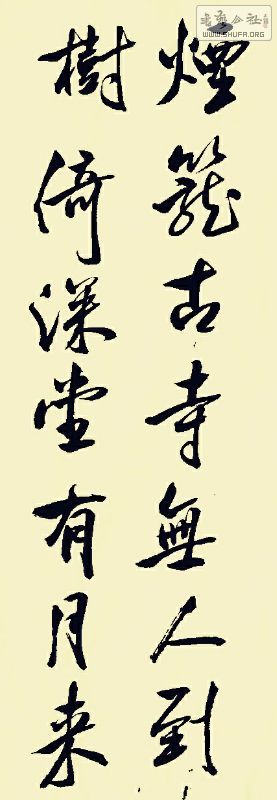 煙籠古寺無人到
樹倚深堂有月来
書藝公社
WWW.SHUFA.ORG